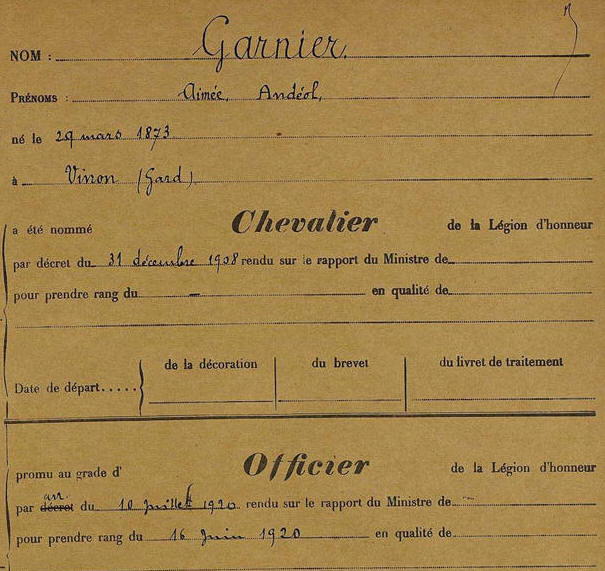 NOM : Garnier.
PRÉNOMS : Aimée, Andéol,
né le 29 mars 1873
à Vinon (Gard)
a été nommé Chevalier de la Légion d'honneur
par décret du 31 décembre 1908 rendu sur le rapport du Ministre de
pour prendre rang du — en qualité de
de la décoration du brevet du livret de traitement
Date de départ.....
promu au grade d' Officier de la Légion d'honneur
arr.
par décret du 10 juillet 1920 rendu sur le rapport du Ministre de
pour prendre rang du 16 Juin 1920 en qualité de